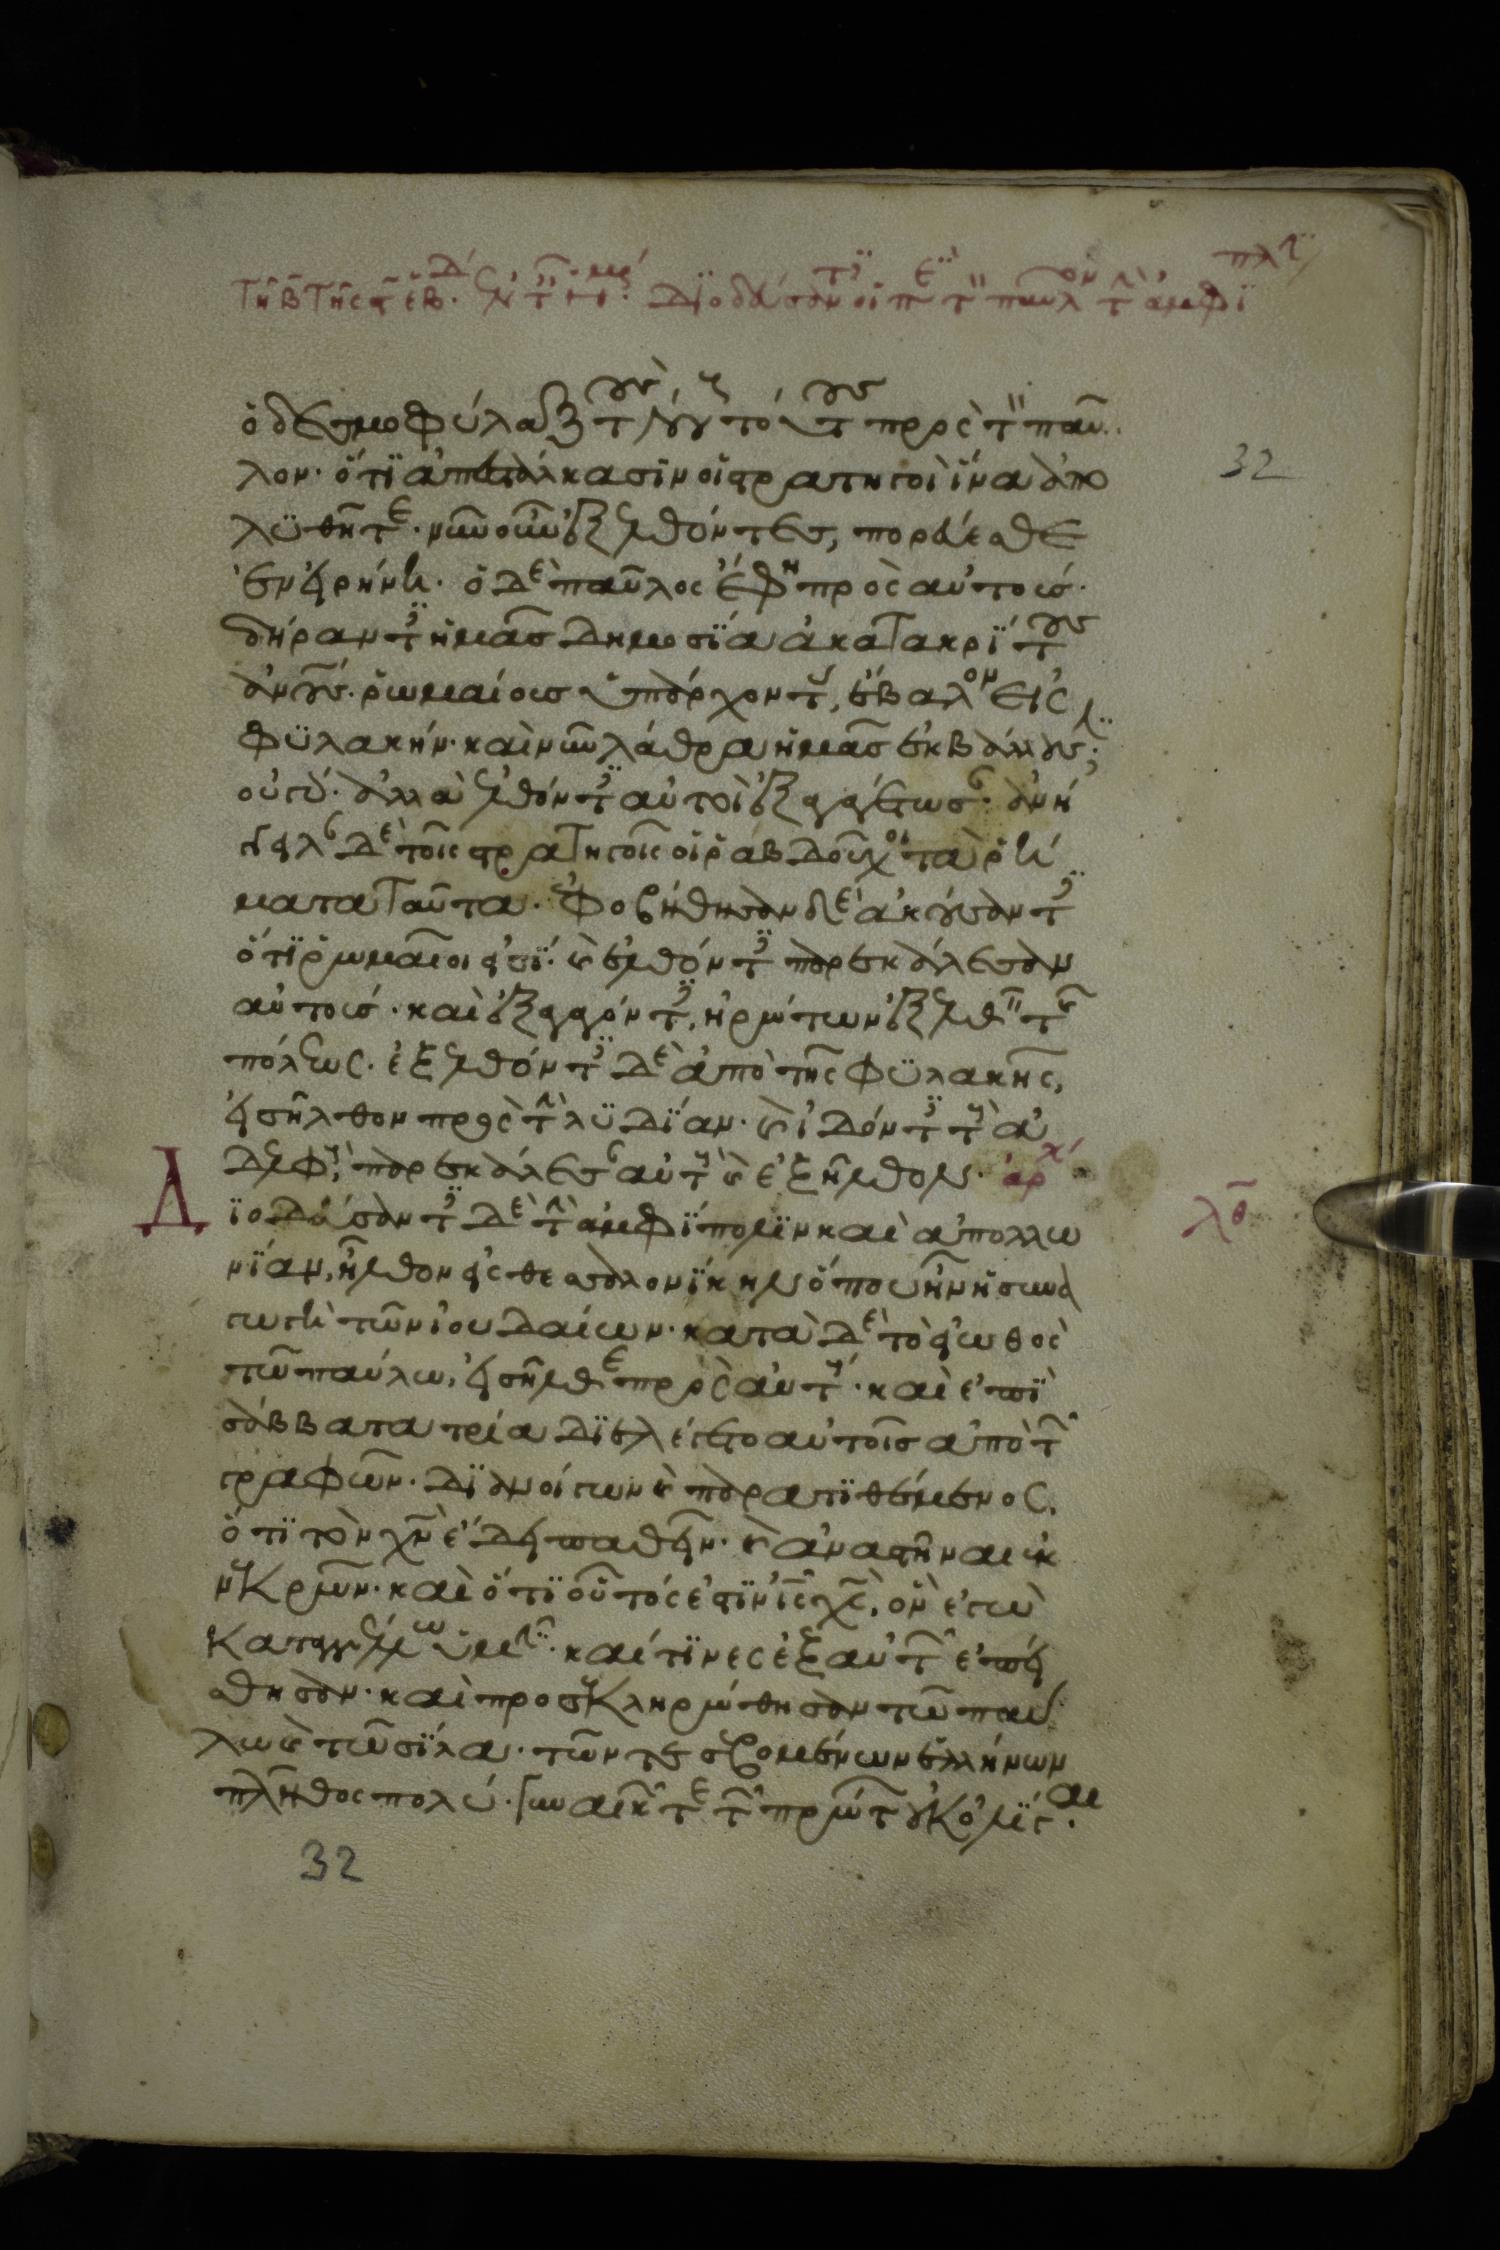 ὁ δεσμοφύλαξ τοὺς λόγους τούτους πρὸς τὸν παῦ
λον· ὅτι ἀπεστάλκασιν οἱ στρατηγοὶ ἵνα ἀπο
λυθῆτε· νῦν οὖν ἐξελθόντες, πορεύεσθε
ἐν εἰρήνη· ὁ δὲ παῦλος ἔφη πρὸς αὐτούς·
δήραντες ἡμᾶς δημοσία ἀκατακρίτους
ἀνους· ῥωμαίους ὑπάρχοντας, ἔβαλον εἰς
φυλακήν· καὶ νῦν λάθρα ἡμᾶς ἐκβάλλουσιν;
οὐ γάρ· ἀλλὰ ἐλθόντες αὐτοὶ ἐξαγαγέτωσαν· ἀνή
γγειλαν δὲ τοῖς στρατηγοῖς οἱ ῥαβδοῦχοι τὰ ῥή
ματα ταῦτα· ἐφοβήθησαν δὲ ἀκούσαντες
ὅτι ῥωμαῖοι εἰσί· καὶ ἐλθόντες παρεκάλεσαν
αὐτούς· καὶ ἐξαγαγόντες, ἠρώτων ἐξελθεῖν τῆς
πόλεως· ἐξελθόντες δὲ ἀπὸ τῆς φυλακῆς,
εἰσῆλθον πρὸς τὴν λυδίαν· καὶ ἰδόντες τοὺς ἀ
δελφούς, παρεκάλεσαν αὐτοὺς καὶ ἐξῆλθον· ἀρχ
Διοδεύσαντες δὲ τὴν ἀμφίπολιν καὶ ἀπολλω
νίαν, ἦλθον εἰς θεσσαλονίκην ὅπου ἦν ἡ συνα
γωγὴ τῶν ἰουδαίων· κατὰ δὲ τὸ εἰωθὸς
τῶ παύλω, εἰσῆλθε πρὸς αὐτούς· καὶ ἐπὶ
σάββατα τρία διελέγετο αὐτοῖς ἀπὸ τῶν
γραφῶν· διανοίγων καὶ παρατιθέμενος,
ὅτι τὸν χν ἔδει παθεῖν· καὶ ἀναστῆναι ἐκ
νεκρῶν· καὶ ὅτι οὗτός ἐστιν ις χς, ὃν ἐγὼ
καταγγέλλω ὑμῖν· καί τινες ἐξ αὐτῶν ἐπεί
σθησαν· καὶ προσεκληρώθησαν τῶ παύ
λω καὶ τῶ σίλα· τῶν τε σεβομένων ἑλλήνων
πλῆθος πολύ· γυναικῶν τε τῶν πρώτων οὐκ ὀλίγαι·
λθ
32
32